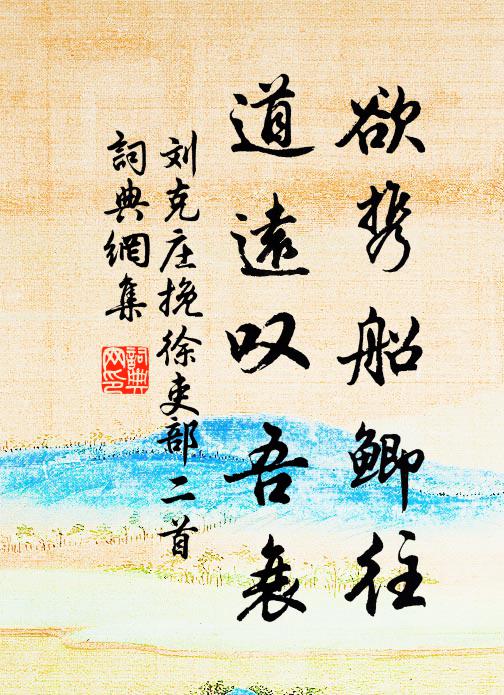 欲携船鲫往
道遠叹吾衰
刘克庄挽徐吏部二首
詞典網集
詞典网印